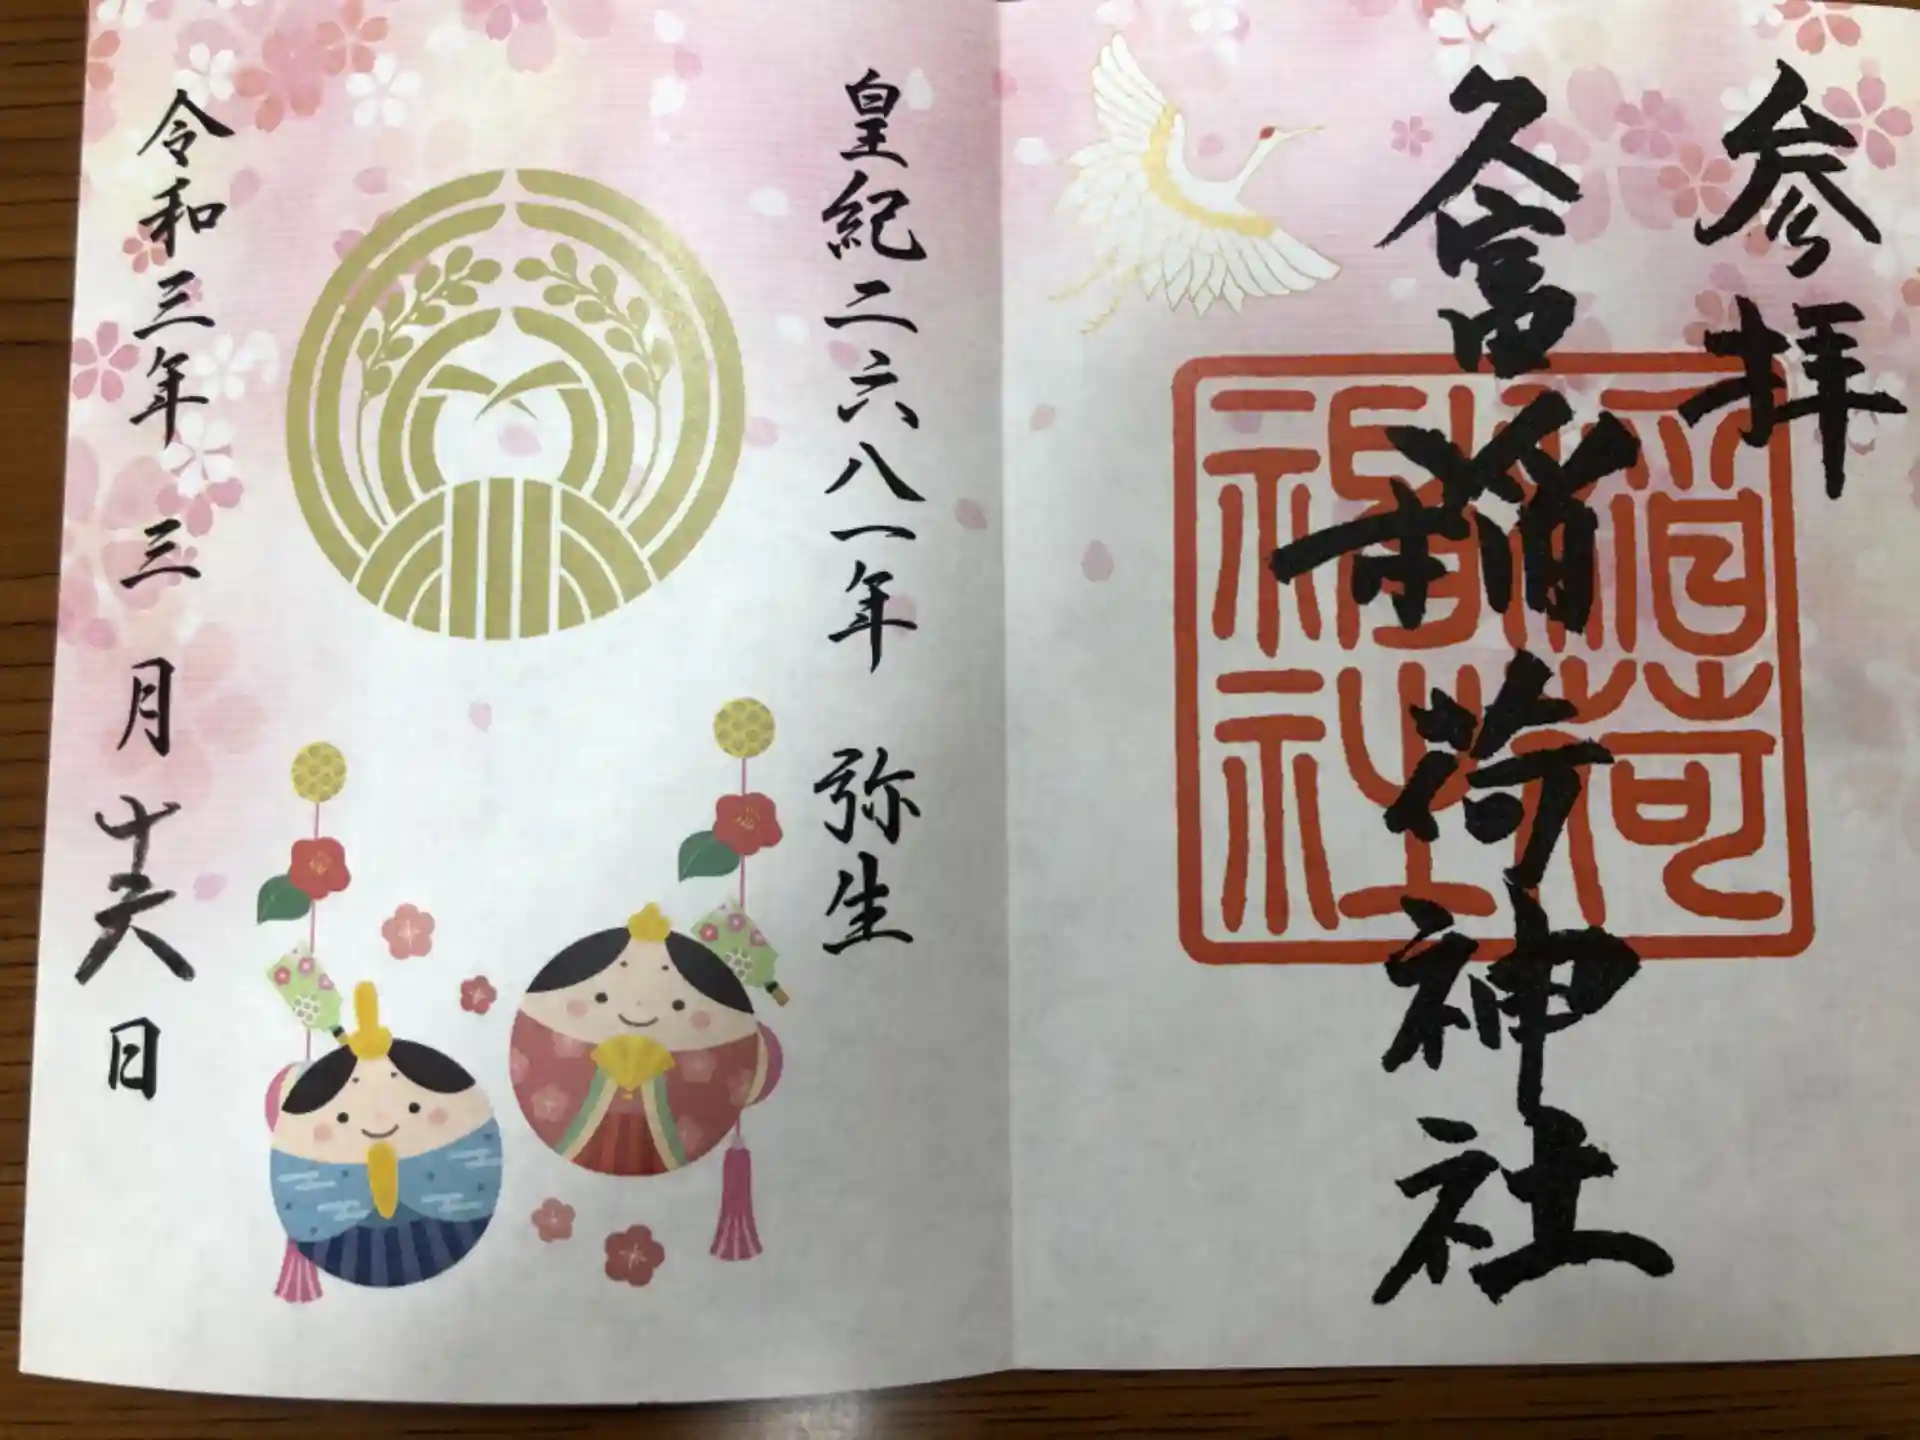 参拝
久富稲荷神社
稲荷
神社
皇紀二六八一年 弥生
令和三年 三月 十六日